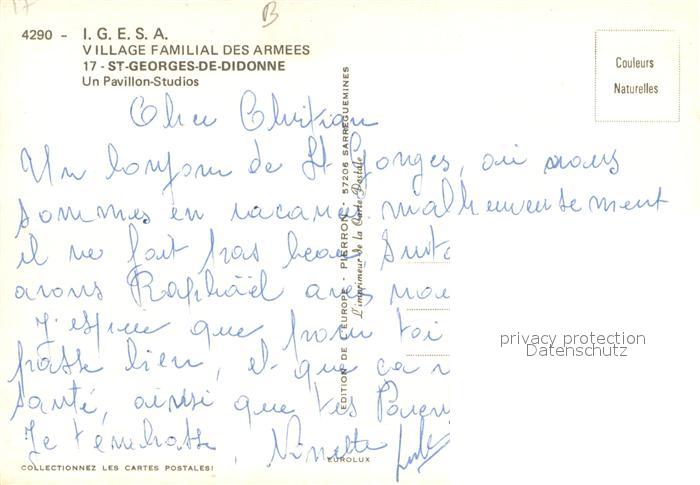 17
B
4290 - I. G. E. S. A.
VILLAGE FAMILIAL DES ARMEES
17 - ST-GEORGES-DE-DIDONNE
Un Pavillon-Studios
Couleurs
Naturelles
Cher Christian
Un bonjour de St Georges, où nous
sommes en vacances. malheureusement
il ne fait pas beau
avons Raphaël avec nou
J'espère que pour toi
passe bien, et que ça
santé, ainsi que tes Paren
Je t'embrasse, Ninette
EDITION DE L'EUROPE - PIERRON - 57206 SARREGUEMINES
L'imprimeur de la Carte Postale
privacy protection
Datenschutz
COLLECTIONNEZ LES CARTES POSTALES!
EUROLUX